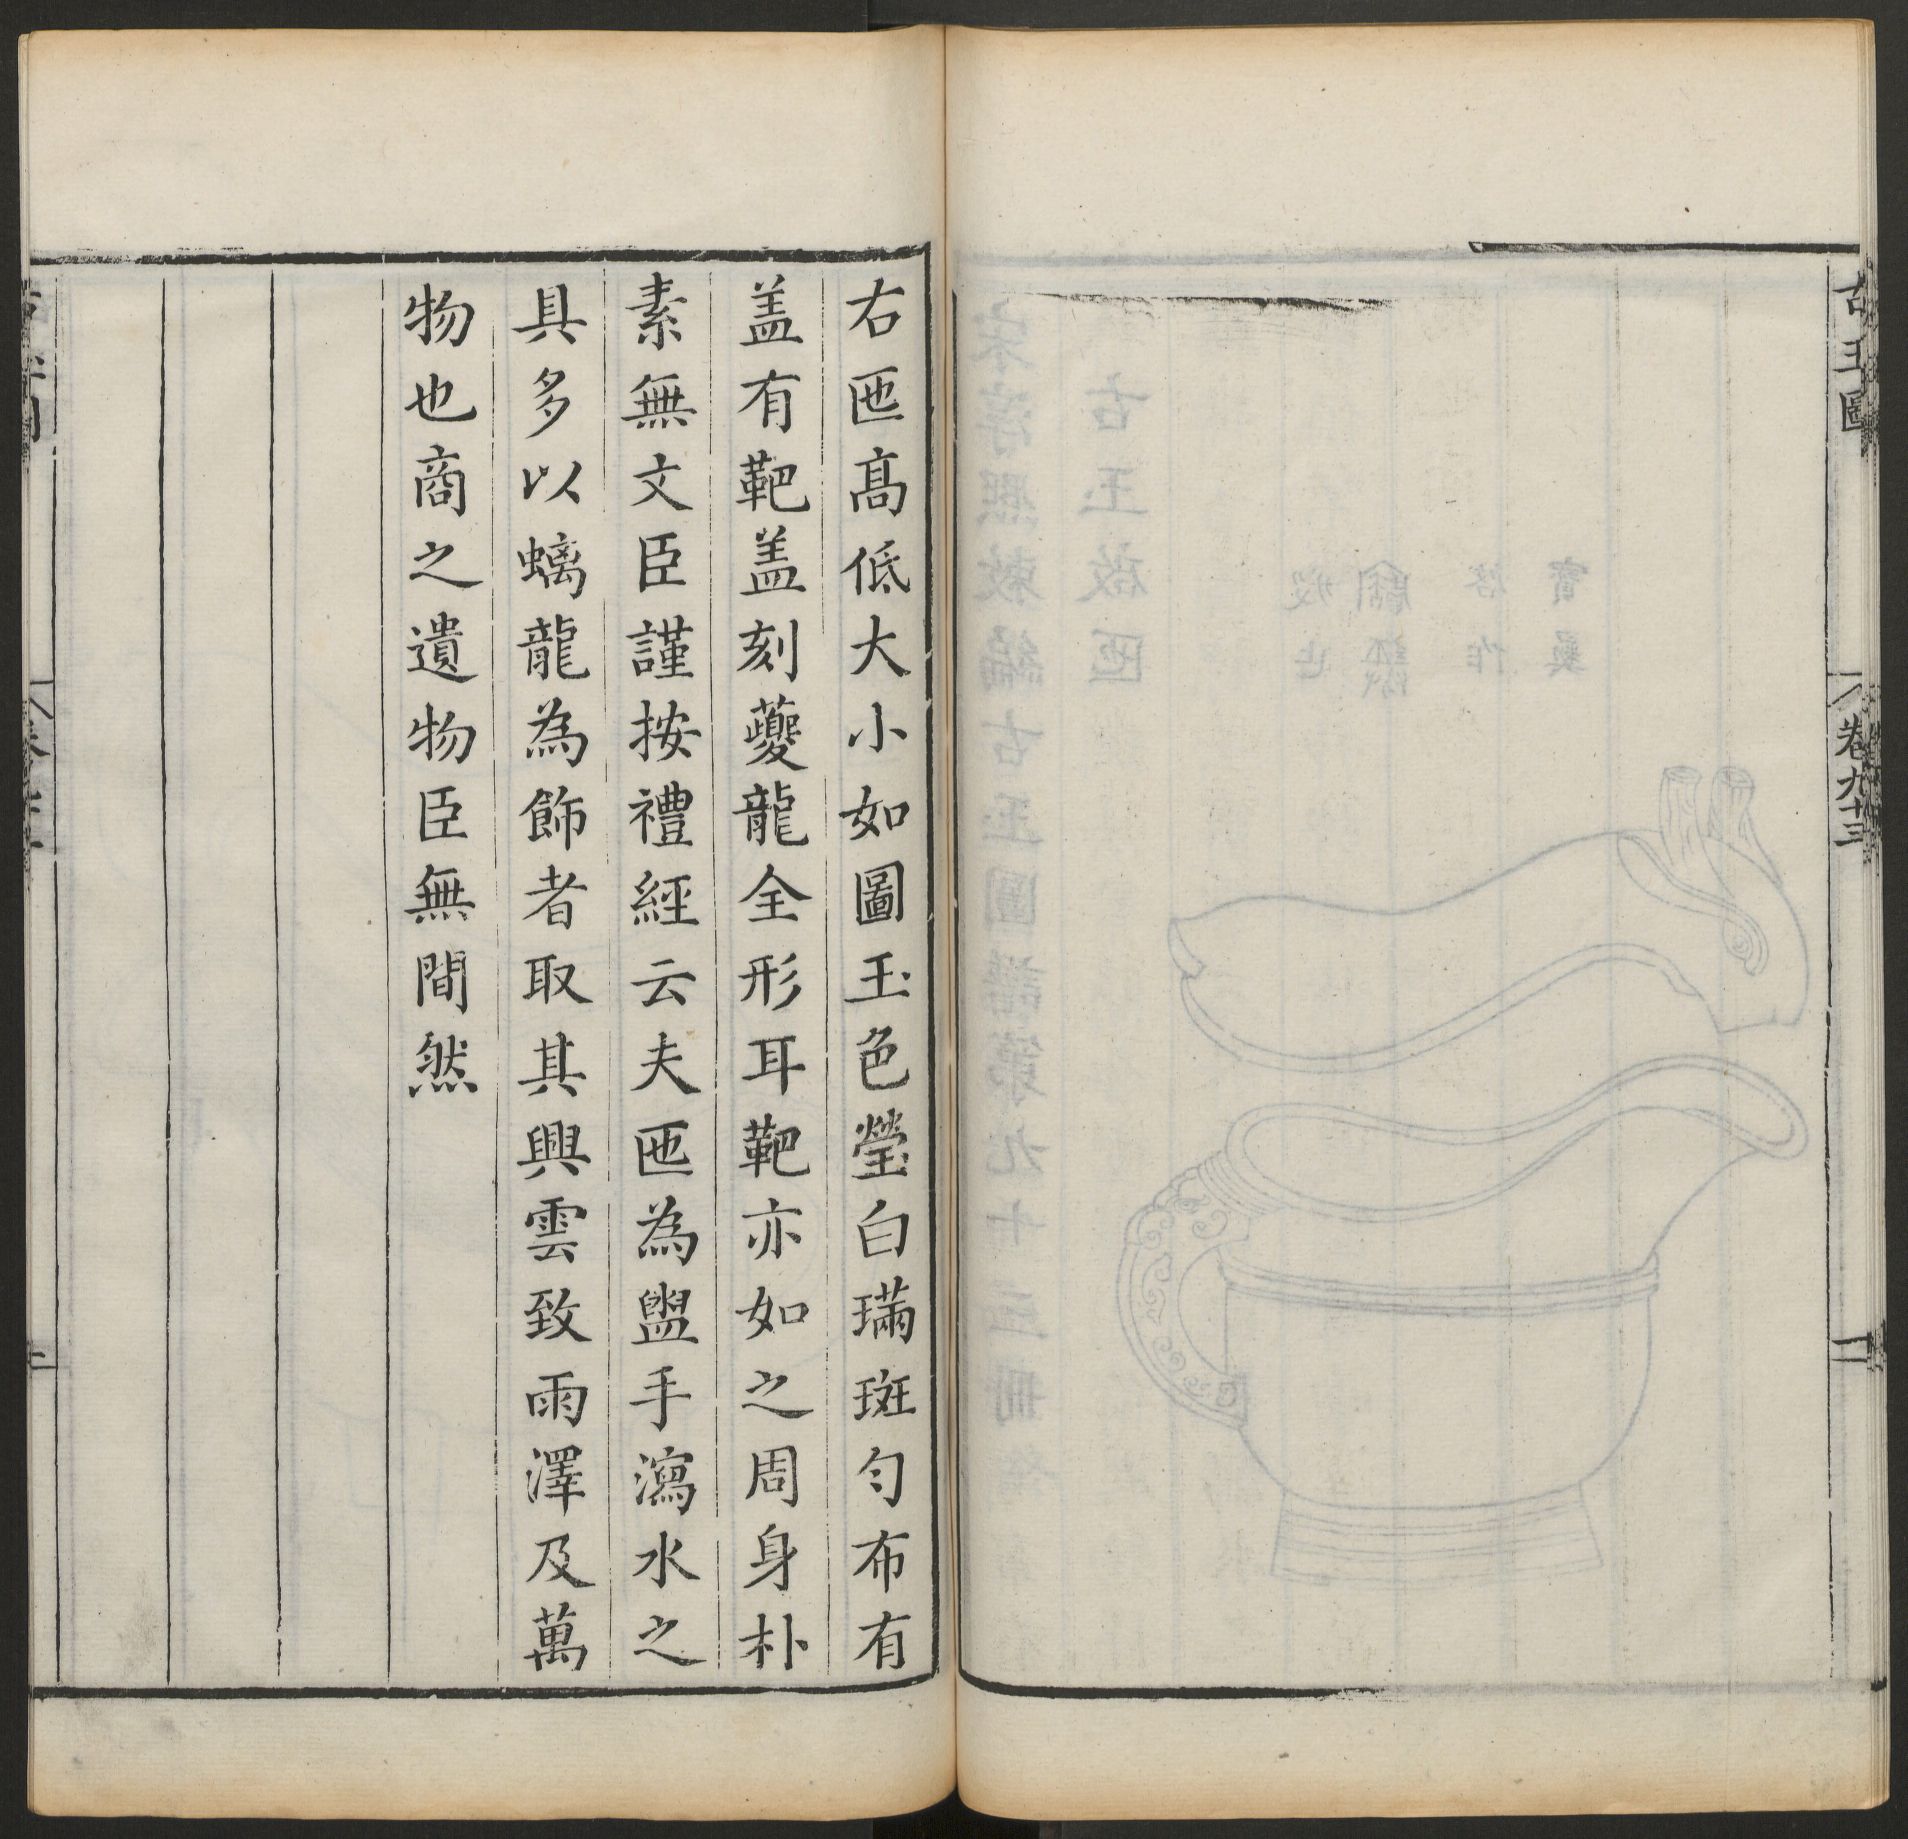 古玉圖
卷九十三
二
右匜高低大小如圖玉色瑩白璊斑勻布有
盖有靶盖刻虁龍全形耳靶亦如之周身朴
素無文臣謹按禮經云夫匜為盥手瀉水之
具多以螭龍為飾者取其興雲致雨澤及萬
物也商之遺物臣無間然